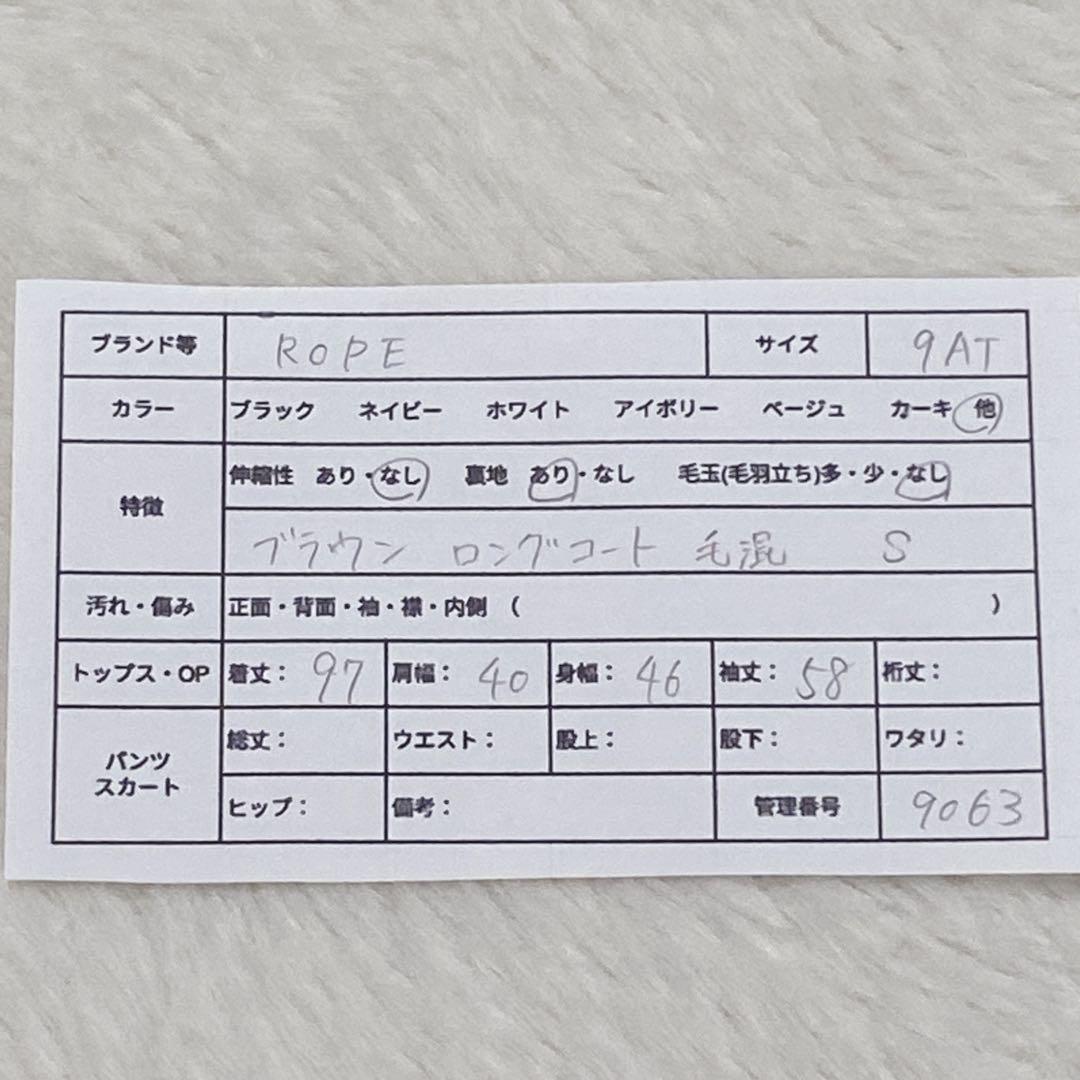 ブランド等 ROPE サイズ 9AT
カラー ブラック ネイビー ホワイト アイボリー ベージュ カーキ 他
特徴 伸縮性 あり・なし 裏地 あり・なし 毛玉(毛羽立ち)多・少・なし
ブラウン ロングコート 毛混 S
汚れ・傷み 正面・背面・袖・襟・内側 ( )
トップス・OP 着丈: 97 肩幅: 40 身幅: 46 袖丈: 58 裄丈:
パンツ スカート 総丈: ウエスト: 股上: 股下: ワタリ:
ヒップ: 備考: 管理番号 9063